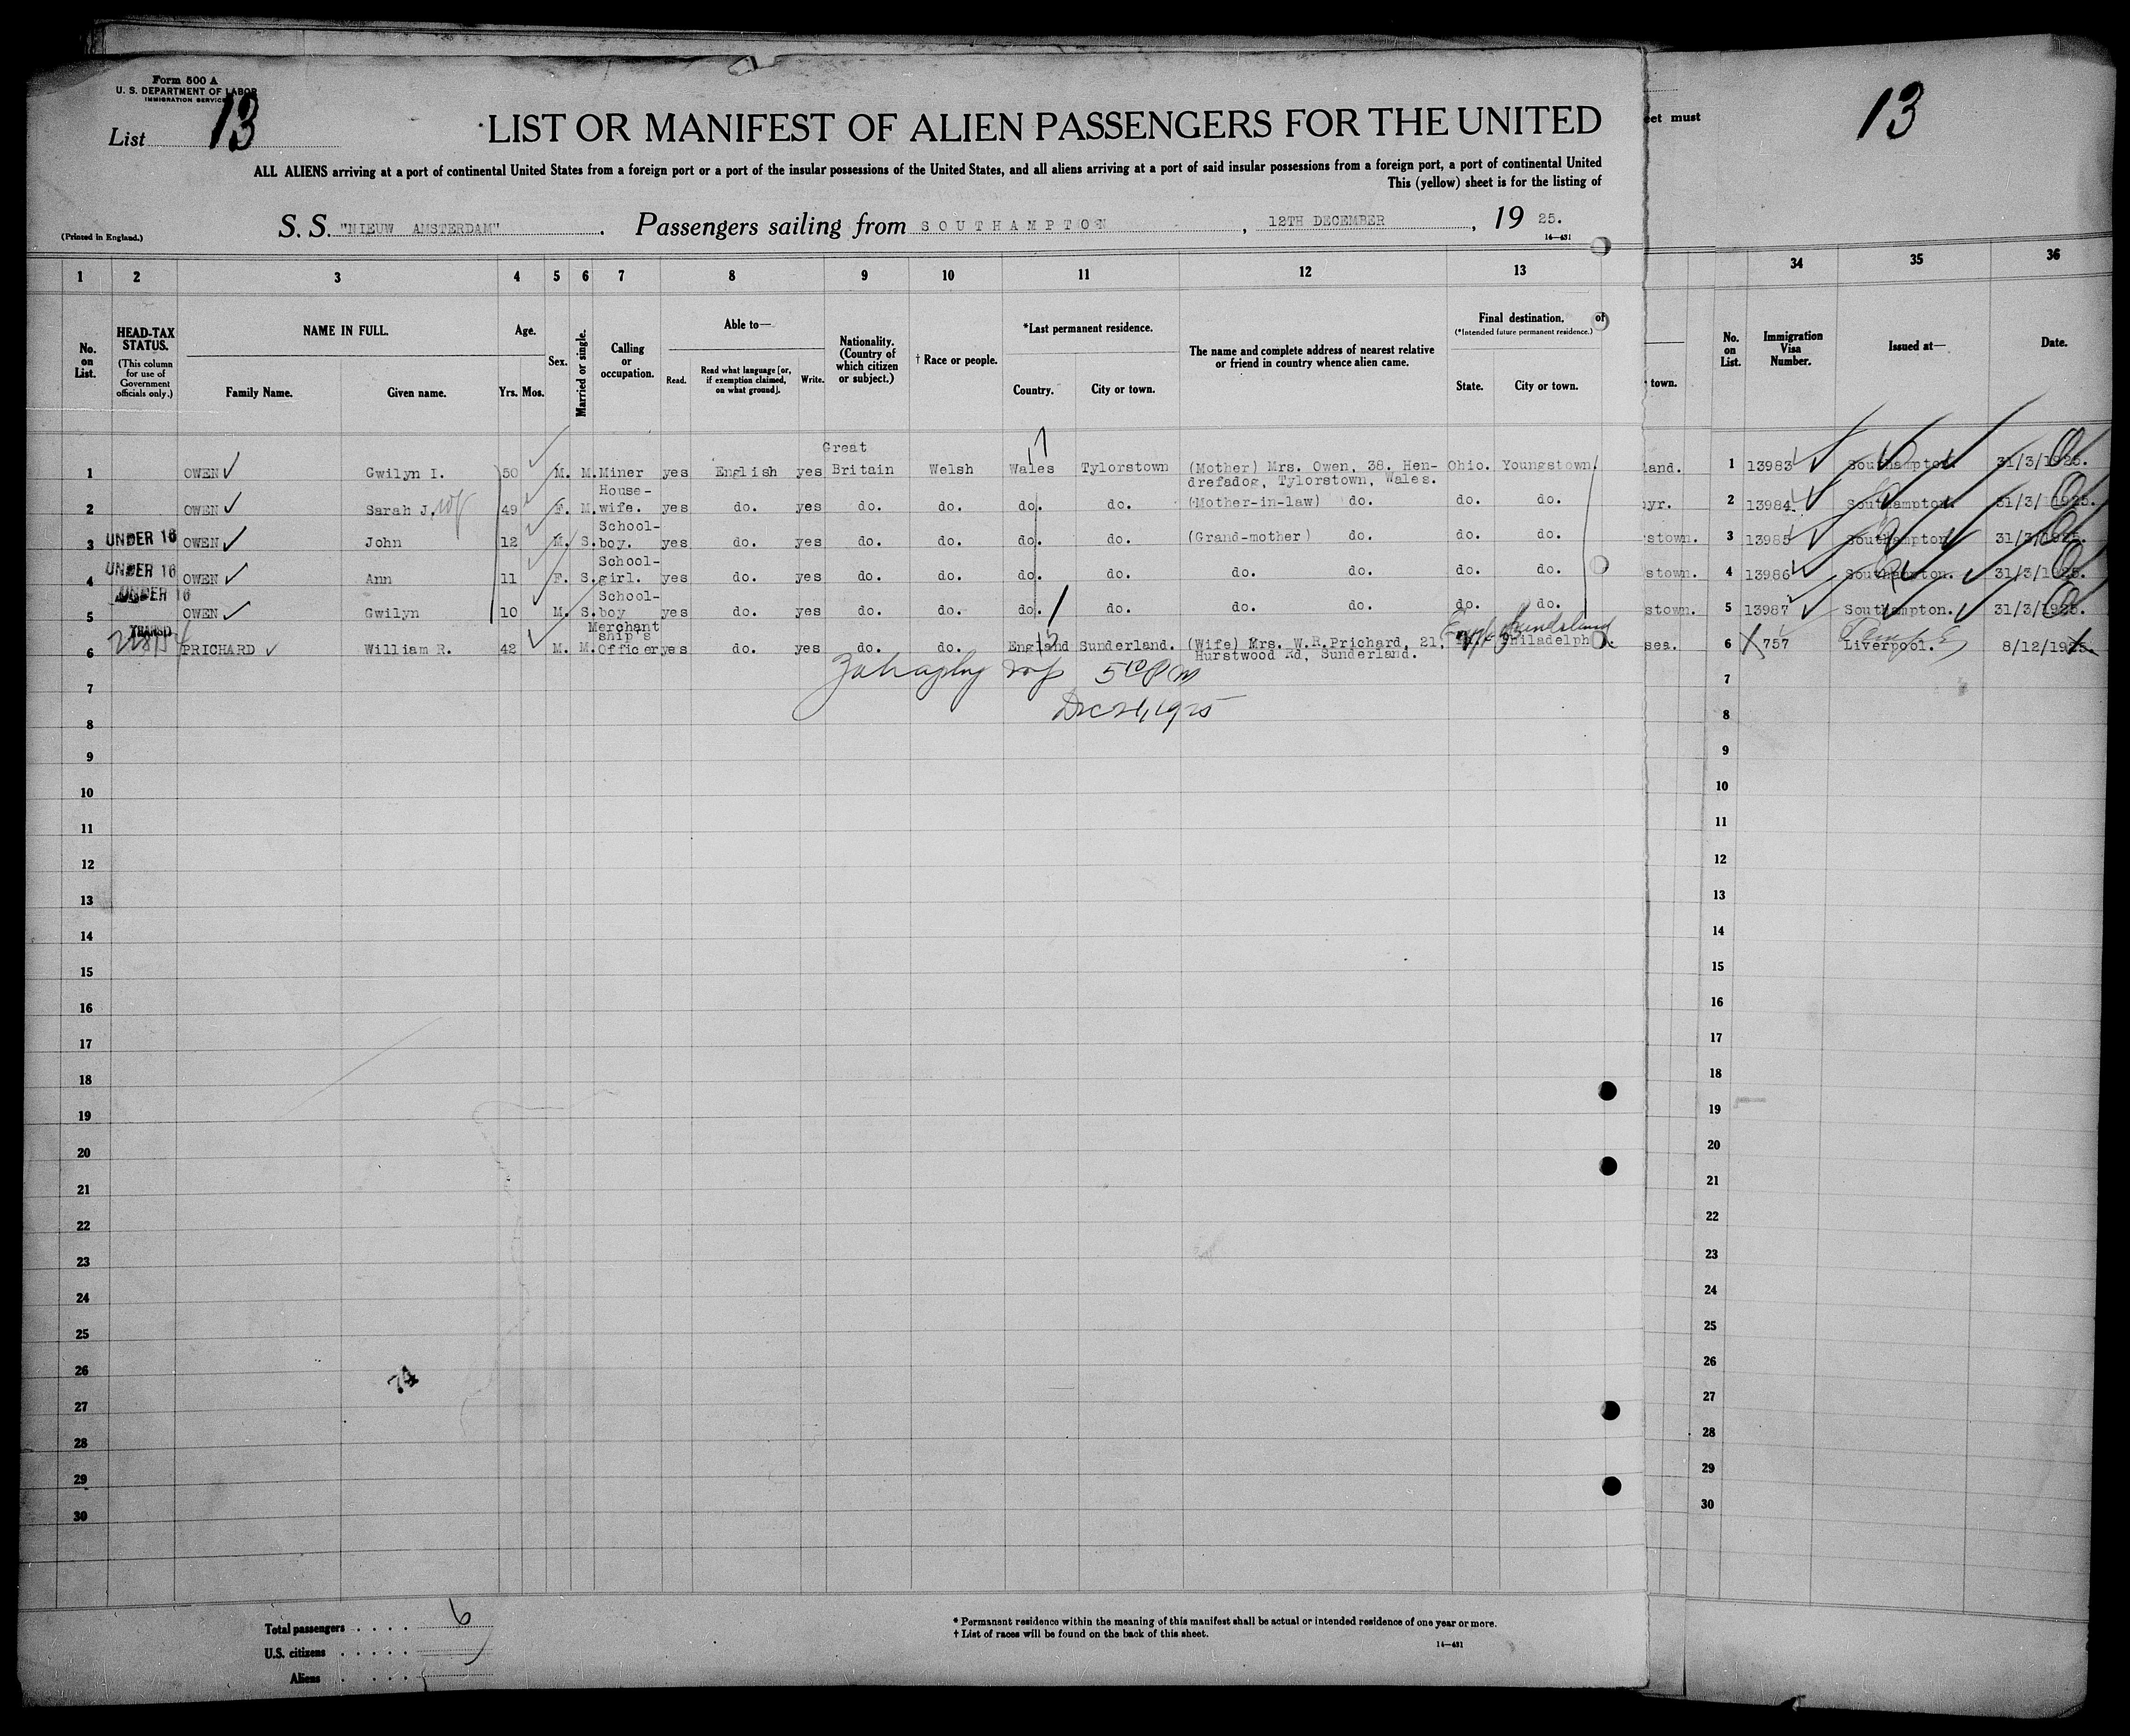 Form 500 A
U. S. DEPARTMENT OF LABOR
IMMIGRATION SERVICE
List 13
LIST OR MANIFEST OF ALIEN PASSENGERS FOR THE UNITED
ALL ALIENS arriving at a port of continental United States from a foreign port or a port of the insular possessions of the United States, and all aliens arriving at a port of said insular possessions from a foreign port, a port of continental United
This (yellow) sheet is for the listing of
(Printed in England.)
S. S. "NIEUW AMSTERDAM". Passengers sailing from SOUTHAMPTON, 12TH DECEMBER, 19 25.
14—431
eet must
13
1 2 3 4 5 6 7 8 9 10 11 12 13
34 35 36
No. on List.
HEAD-TAX STATUS.
(This column for use of Government officials only.)
NAME IN FULL.
Family Name. Given name.
Age.
Yrs. Mos.
Sex.
Married or single.
Calling or occupation.
Able to—
Read. Read what language [or, if exemption claimed, on what ground]. Write.
Nationality. (Country of which citizen or subject.)
† Race or people.
*Last permanent residence.
Country. City or town.
The name and complete address of nearest relative or friend in country whence alien came.
Final destination.
(*Intended future permanent residence.)
State. City or town.
of
town.
No. on List.
Immigration Visa Number.
Issued at—
Date.
1 OWEN Gwilyn I. 50 M. M. Miner yes English yes Great Britain Welsh Wales Tylorstown (Mother) Mrs. Owen, 38. Hen- Ohio. Youngstown
drefadog, Tylorstown, Wales.
land. 1 13983 Southampton. 31/3/1925.
2 OWEN Sarah J. 49 F. M. House-wife. yes do. yes do. do. do. do. (Mother-in-law) do. do. do.
yr. 2 13984 Southampton. 31/3/1925.
3 UNDER 16 OWEN John 12 M. S. School-boy. yes do. yes do. do. do. do. (Grand-mother) do. do. do.
stown. 3 13985 Southampton. 31/3/1925.
4 UNDER 16 OWEN Ann 11 F. S. School-girl. yes do. yes do. do. do. do. do. do. do. do.
stown. 4 13986 Southampton. 31/3/1925.
5 UNDER 16 OWEN Gwilyn 10 M. S. School-boy yes do. yes do. do. do. do. do. do. do. do.
stown. 5 13987 Southampton. 31/3/1925.
6 TRANSD PRICHARD William R. 42 M. M. Merchant ship's Officer yes do. yes do. do. England Sunderland. (Wife) Mrs. W.R.Prichard, 21, Philadelph
Hurstwood Rd, Sunderland.
Sunderland
sea. 6 757 Liverpool. 8/12/1925.
Dec 21, 1925
7 7
8 8
9 9
10 10
11 11
12 12
13 13
14 14
15 15
16 16
17 17
18 18
19 19
20 20
21 21
22 22
23 23
24 24
25 25
26 26
27 27
28 28
29 29
30 30
74
Total passengers . . . . 6
U.S. citizens . . . . .
Aliens . . . .
* Permanent residence within the meaning of this manifest shall be actual or intended residence of one year or more.
† List of races will be found on the back of this sheet.
14—431